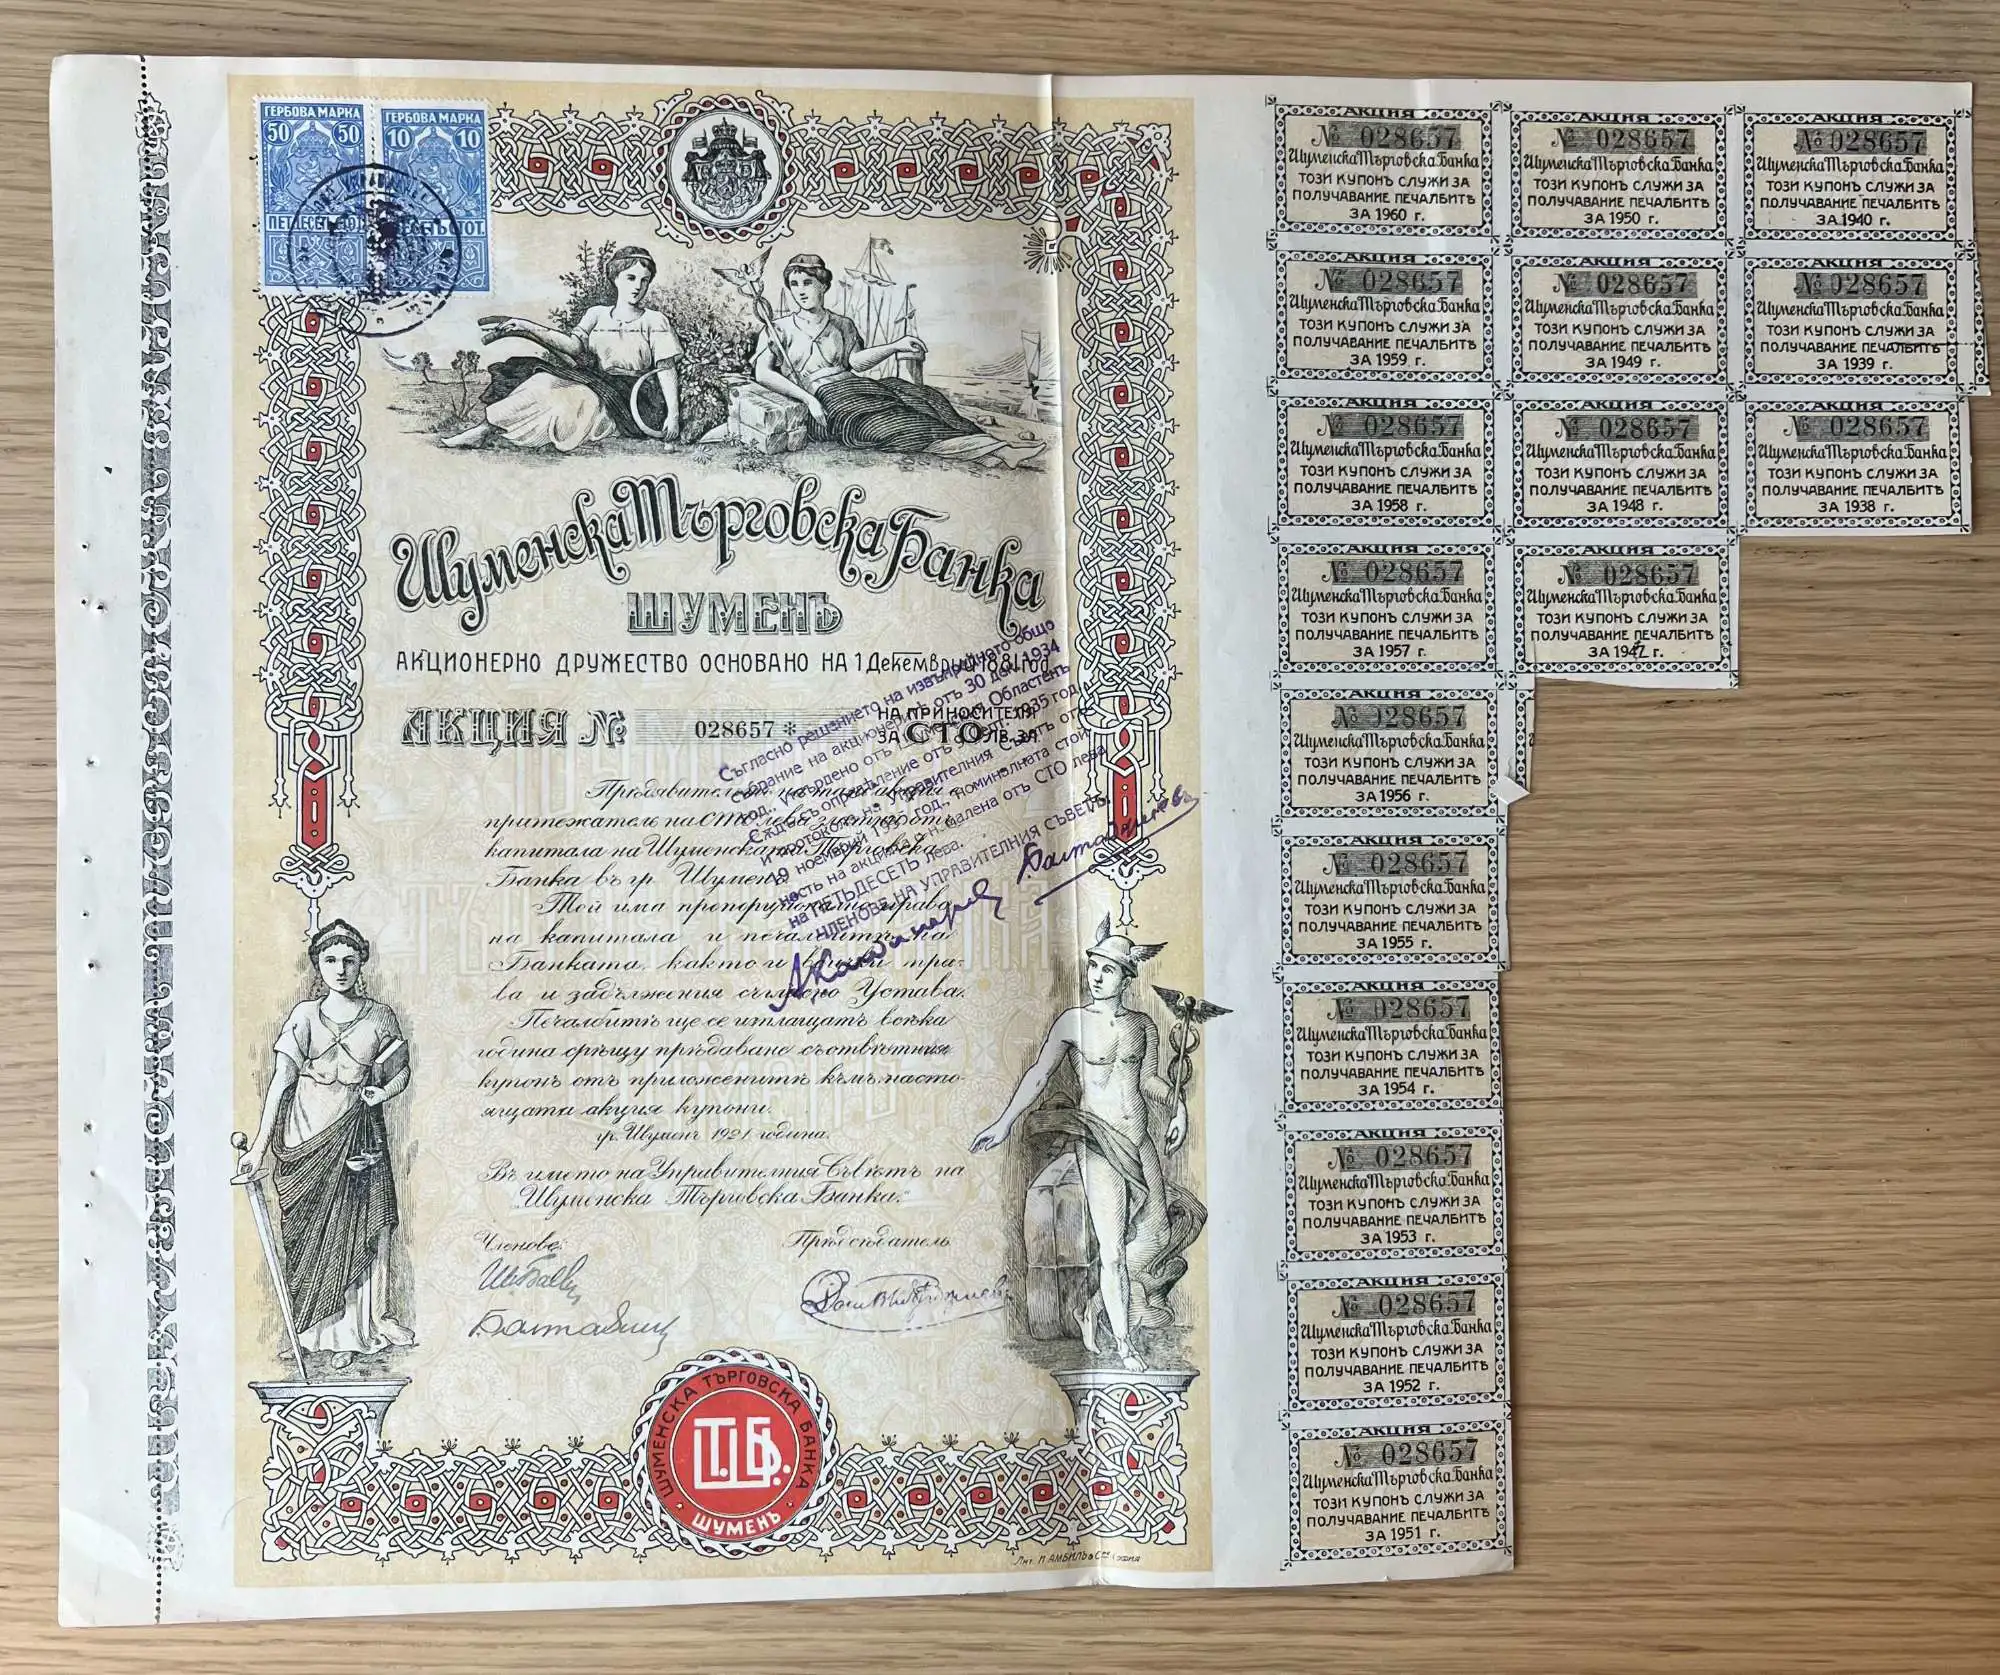 ГЕРБОВА МАРКА
50 50
ПЕТДЕСЕТЬ СТОТ.
ГЕРБОВА МАРКА
10 10
ДЕСЕТЬ СТОТ.
Шуменска Търговска Банка
ШУМЕНЪ
АКЦИОНЕРНО ДРУЖЕСТВО ОСНОВАНО НА 1 Декемврий 1881 год.
АКЦИЯ № 028657 * НА ПРИНОСИТЕЛЯ
ЗА СТО ЛВ. ЗЛ.
Прѣдявительтъ на тази акция е
притежатель на СТО лева златни отъ
капитала на Шуменската Търговска
Банка въ гр. Шуменъ.
Той има пропорционално право
на капитала и печалбитѣ на
Банката, както и всички пра-
ва и задължения съгласно Устава.
Печалбитѣ ще се изплащатъ всѣка
година срѣщу прѣдаване съотвѣтния
купонъ отъ приложенитѣ към насто-
ящата акция купони.
гр. Шуменъ 1921 година.
Въ името на Управителния Съвѣтъ на
„Шуменска Търговска Банка."
Членове:
Прѣдсѣдатель
Съгласно решението на извънредното общо
събрание на акционеритѣ отъ 30 дек. 1934
год., утвърдено отъ Шуменския Областенъ
Сждъ съ опредѣление отъ септ. 1935 год.
и протоколъ на Управителния Съветъ отъ
19 ноемврий 1935 год., номиналната стой-
ность на акцията е намалена отъ СТО лева
на ПЕТЬДЕСЕТЬ лева.
ЧЛЕНОВЕ НА УПРАВИТЕЛНИЯ СЪВЕТЪ:
ШУМЕНСКА ТЪРГОВСКА БАНКА
Ш.Т.Б.
ШУМЕНЪ
Лит. П. АМБИЛЪ о Сие СОФИЯ
АКЦИЯ
№ 028657
Шуменска Търговска Банка
ТОЗИ КУПОНЪ СЛУЖИ ЗА
ПОЛУЧАВАНИЕ ПЕЧАЛБИТѢ
ЗА 1960 г.
АКЦИЯ
№ 028657
Шуменска Търговска Банка
ТОЗИ КУПОНЪ СЛУЖИ ЗА
ПОЛУЧАВАНИЕ ПЕЧАЛБИТѢ
ЗА 1950 г.
АКЦИЯ
№ 028657
Шуменска Търговска Банка
ТОЗИ КУПОНЪ СЛУЖИ ЗА
ПОЛУЧАВАНИЕ ПЕЧАЛБИТѢ
ЗА 1940 г.
АКЦИЯ
№ 028657
Шуменска Търговска Банка
ТОЗИ КУПОНЪ СЛУЖИ ЗА
ПОЛУЧАВАНИЕ ПЕЧАЛБИТѢ
ЗА 1959 г.
АКЦИЯ
№ 028657
Шуменска Търговска Банка
ТОЗИ КУПОНЪ СЛУЖИ ЗА
ПОЛУЧАВАНИЕ ПЕЧАЛБИТѢ
ЗА 1949 г.
АКЦИЯ
№ 028657
Шуменска Търговска Банка
ТОЗИ КУПОНЪ СЛУЖИ ЗА
ПОЛУЧАВАНИЕ ПЕЧАЛБИТѢ
ЗА 1939 г.
АКЦИЯ
№ 028657
Шуменска Търговска Банка
ТОЗИ КУПОНЪ СЛУЖИ ЗА
ПОЛУЧАВАНИЕ ПЕЧАЛБИТѢ
ЗА 1958 г.
АКЦИЯ
№ 028657
Шуменска Търговска Банка
ТОЗИ КУПОНЪ СЛУЖИ ЗА
ПОЛУЧАВАНИЕ ПЕЧАЛБИТѢ
ЗА 1948 г.
АКЦИЯ
№ 028657
Шуменска Търговска Банка
ТОЗИ КУПОНЪ СЛУЖИ ЗА
ПОЛУЧАВАНИЕ ПЕЧАЛБИТѢ
ЗА 1938 г.
АКЦИЯ
№ 028657
Шуменска Търговска Банка
ТОЗИ КУПОНЪ СЛУЖИ ЗА
ПОЛУЧАВАНИЕ ПЕЧАЛБИТѢ
ЗА 1957 г.
АКЦИЯ
№ 028657
Шуменска Търговска Банка
ТОЗИ КУПОНЪ СЛУЖИ ЗА
ПОЛУЧАВАНИЕ ПЕЧАЛБИТѢ
ЗА 1947 г.
АКЦИЯ
№ 028657
Шуменска Търговска Банка
ТОЗИ КУПОНЪ СЛУЖИ ЗА
ПОЛУЧАВАНИЕ ПЕЧАЛБИТѢ
ЗА 1956 г.
АКЦИЯ
№ 028657
Шуменска Търговска Банка
ТОЗИ КУПОНЪ СЛУЖИ ЗА
ПОЛУЧАВАНИЕ ПЕЧАЛБИТѢ
ЗА 1955 г.
АКЦИЯ
№ 028657
Шуменска Търговска Банка
ТОЗИ КУПОНЪ СЛУЖИ ЗА
ПОЛУЧАВАНИЕ ПЕЧАЛБИТѢ
ЗА 1954 г.
АКЦИЯ
№ 028657
Шуменска Търговска Банка
ТОЗИ КУПОНЪ СЛУЖИ ЗА
ПОЛУЧАВАНИЕ ПЕЧАЛБИТѢ
ЗА 1953 г.
АКЦИЯ
№ 028657
Шуменска Търговска Банка
ТОЗИ КУПОНЪ СЛУЖИ ЗА
ПОЛУЧАВАНИЕ ПЕЧАЛБИТѢ
ЗА 1952 г.
АКЦИЯ
№ 028657
Шуменска Търговска Банка
ТОЗИ КУПОНЪ СЛУЖИ ЗА
ПОЛУЧАВАНИЕ ПЕЧАЛБИТѢ
ЗА 1951 г.